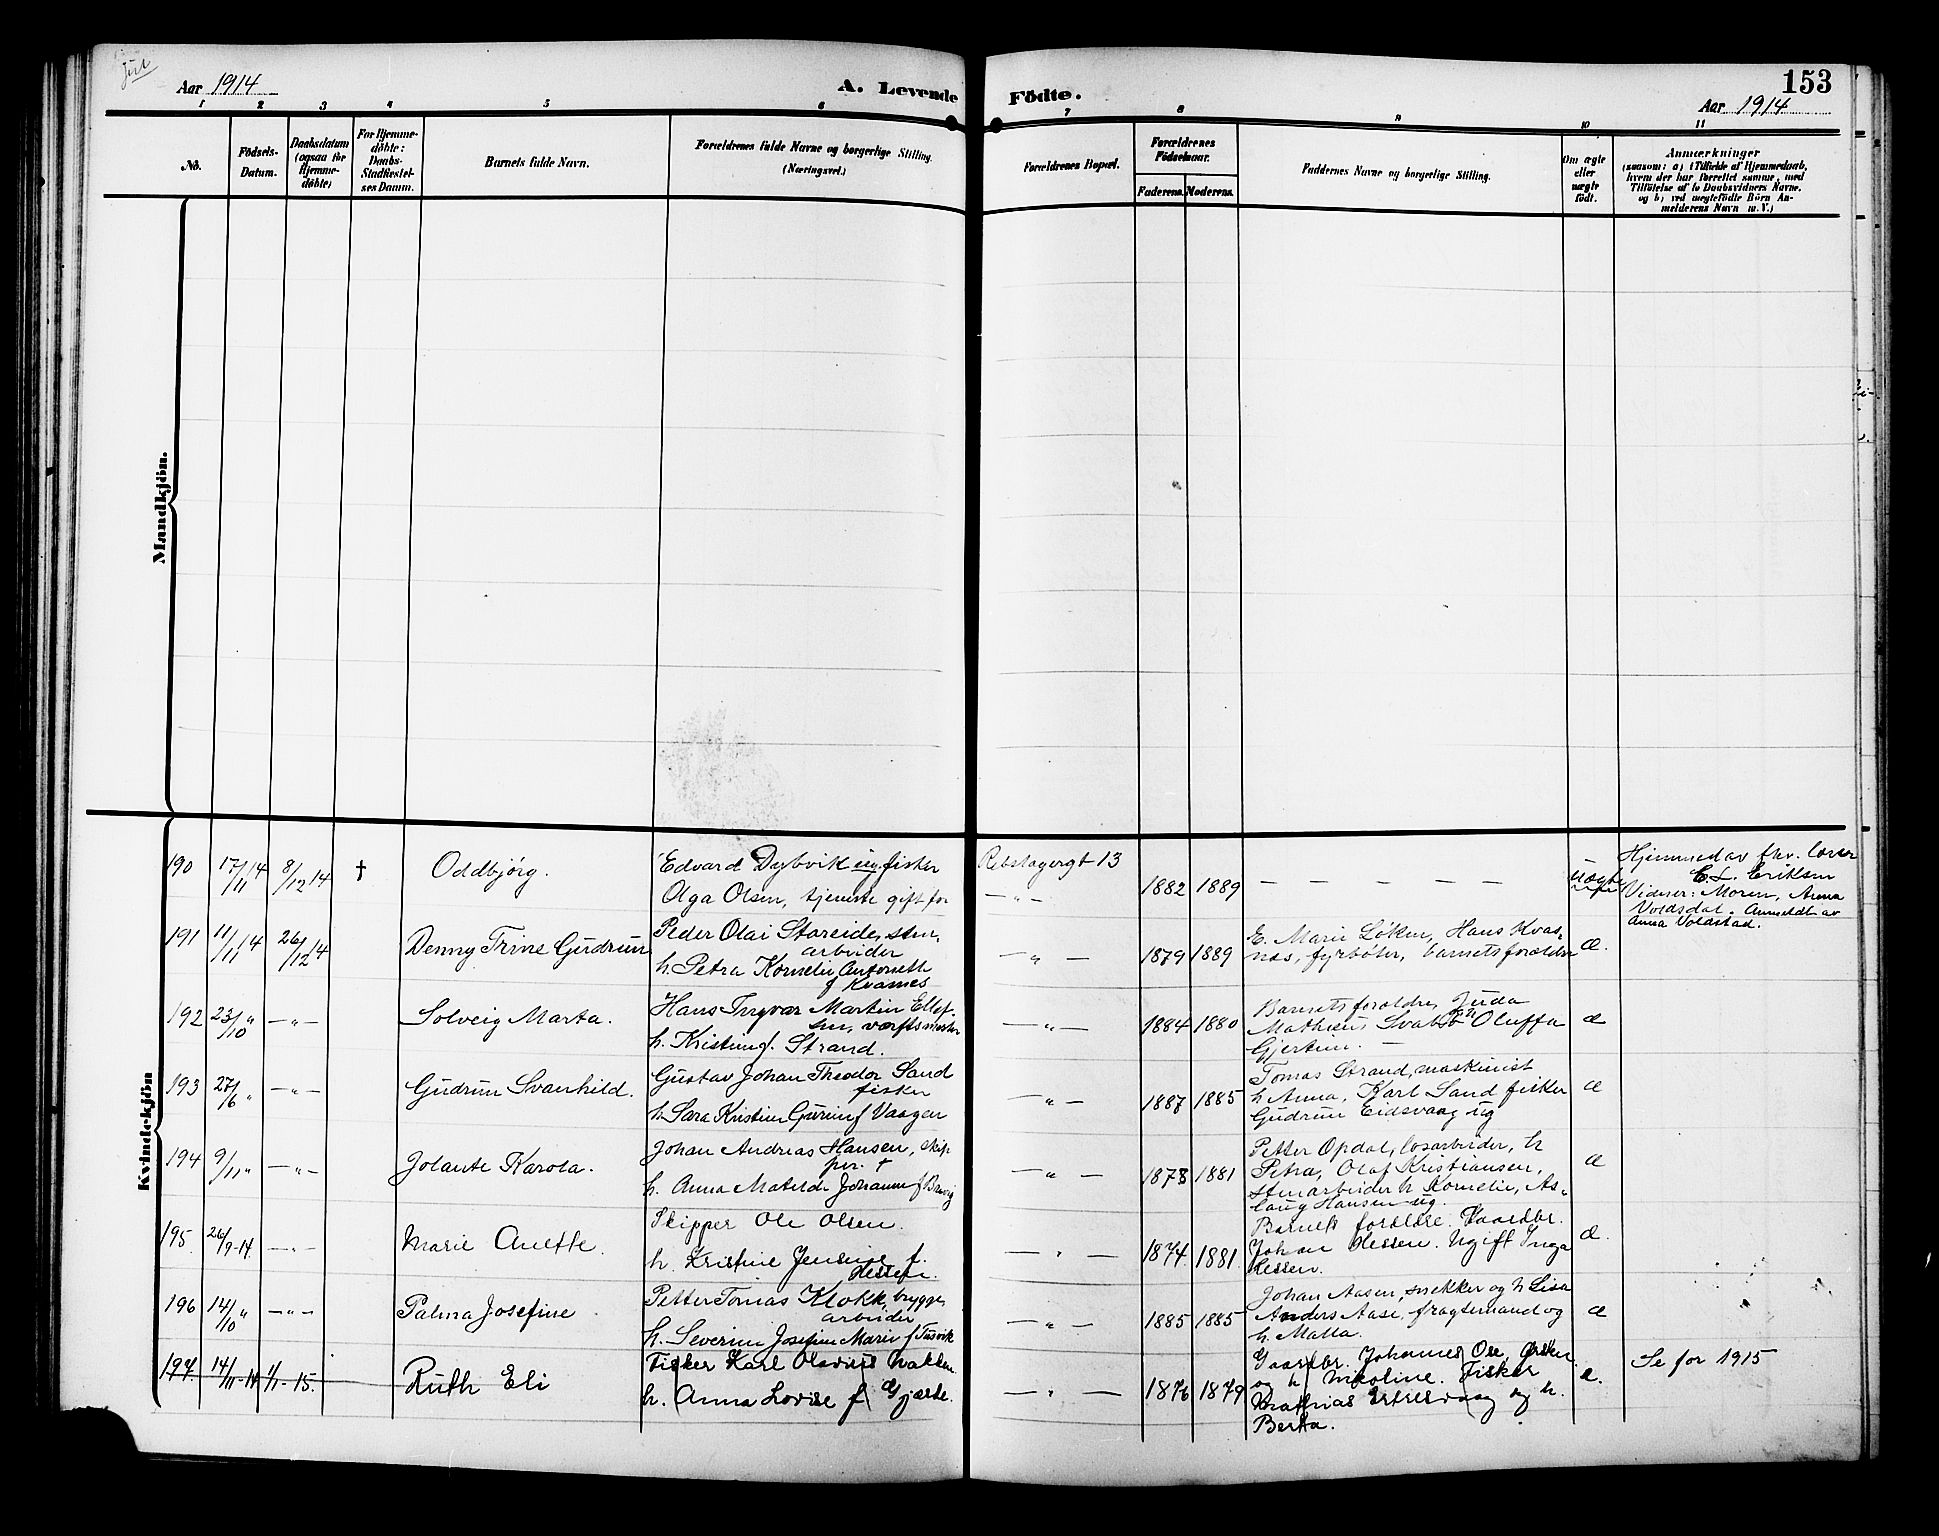 Aar 1914
A. Levende
Födte.
153
Aar 1914
1 2 3 4 5 6 7 8 9 10 11
No.
Födsels-
Datum.
Daabsdatum
(ogsaa for
Hjemme-
döbte)
For Hjemme-
döbte:
Daabs-
Stadfæstel-
ses Datum.
Barnets fulde Navn.
Forældrenes fulde Navne og borgerlige Stilling.
(Næringsvei.)
Forældrenes Bopæl.
Forældrenes
Födselsaar.
Faderens. Moderens.
Faddernes Navne og borgerlige Stilling.
Om ægte
eller
uægte
födt.
Anmærkninger
(saasom: a) i Tilfælde af Hjemmedaab,
hvem der har forrettet samme, med
Tilföielse af to Daabsvidners Navne,
og b) ved uægtefödte Börn An-
melderens Navn m.V.)
Mandkjön.
Kvindekjön
190 17/11 14 8/12 14 † Oddbjörg.
Edvard Dybvik ung fisker
Olga Olsen, tjeneste gift for
Rebslagergt 13
— „ — 1882 1889 — — — — — uægte
Hjemmed av fhv. lærer
E. L. Eriksen
Vidner: Moren, Anna
Voldsdal. Anmeldt av
Anna Voldstad.
191 11/11 14 26/12 14 Denny Trine Gudrun
Peder Olai Stareide, sten,
arbeider
h. Petra Kornelie Antonette
f Kvasnes
— „ — 1879 1889
E. Marie Løken, Hans Kvas-
nes, fyrbøter, barnets forældre
æ.
192 23/10 „ — „ — Solveig Marta.
Hans Ingvar Martin Ellef-
sen, værftsmester
h. Kristine f. Strand.
— „ — 1884 1880
Barnets forældre, Juda
Matheus Oluffa
Gjertsen. —
æ
193 27/6 „ — „ — Gudrun Svanhild.
Gustav Johan Theodor Sand
fisker
h. Sara Kristine Gurine f Vaagen
— „ — 1887 1885
Tomas Strand, maskinist
h Anna, Karl Sand fisker
Gudrun Eidsvaag ug
æ
194 9/11 „ — „ — Jolante Karola.
Johan Andreas Hansen, skip
per. †
h. Anna Matilde Johanne f Brevig
— „ — 1878 1881
Petter Opdal, losarbeider, h
Petra, Olaf Kristiansen,
stenarbeider h Kornelie, As-
laug Hansen ug.
æ
195 26/9-14. — „ — Marie Anette.
Skipper Ole Olsen.
h. Kristine Jensine f.
Hessen.
— „ — 1874. 1881.
Barnets forældre. Gaardbr.
Johan Hessen. Ugift Inga
Hessen.
æ.
196 14/10 „ — „ — Palma Josefine
Petter Tomas Klokk, brygge,
arbeider
h. Severine Josefine Marie f Tusvik
— „ — 1885 1885
Johan Aasen, snekker og h Lisa
Anders Aase, fragtemand og
h. Malla.
æ
197 14/11-14 1/1-15. Ruth Eli
Fisker Karl Olavius Nakken
h. Anna Lovise f Gjærde.
— „ — 1876 1879
Gaardbr. Johannes Ose, Ørsken
og h Nikoline. Fisker
Mathias og h.
Berta.
æ.
Se for 1915